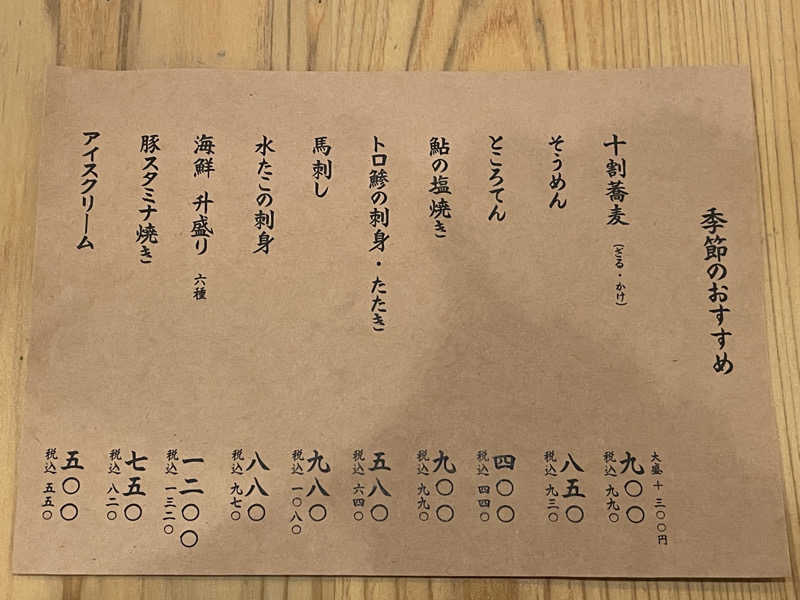 季節のおすすめ
十割蕎麦 (ざる・かけ)
大盛 十三〇〇円
九〇〇
税込 九九〇
そうめん
八五〇
税込 九三〇
ところてん
四〇〇
税込 四四〇
鮎の塩焼き
九〇〇
税込 九九〇
トロ鯵の刺身・たたき
五八〇
税込 六四〇
馬刺し
九八〇
税込 一〇八〇
水たこの刺身
八八〇
税込 九七〇
海鮮 升盛り 六種
一二〇〇
税込 一三二〇
豚スタミナ焼き
七五〇
税込 八二〇
アイスクリーム
五〇〇
税込 五五〇